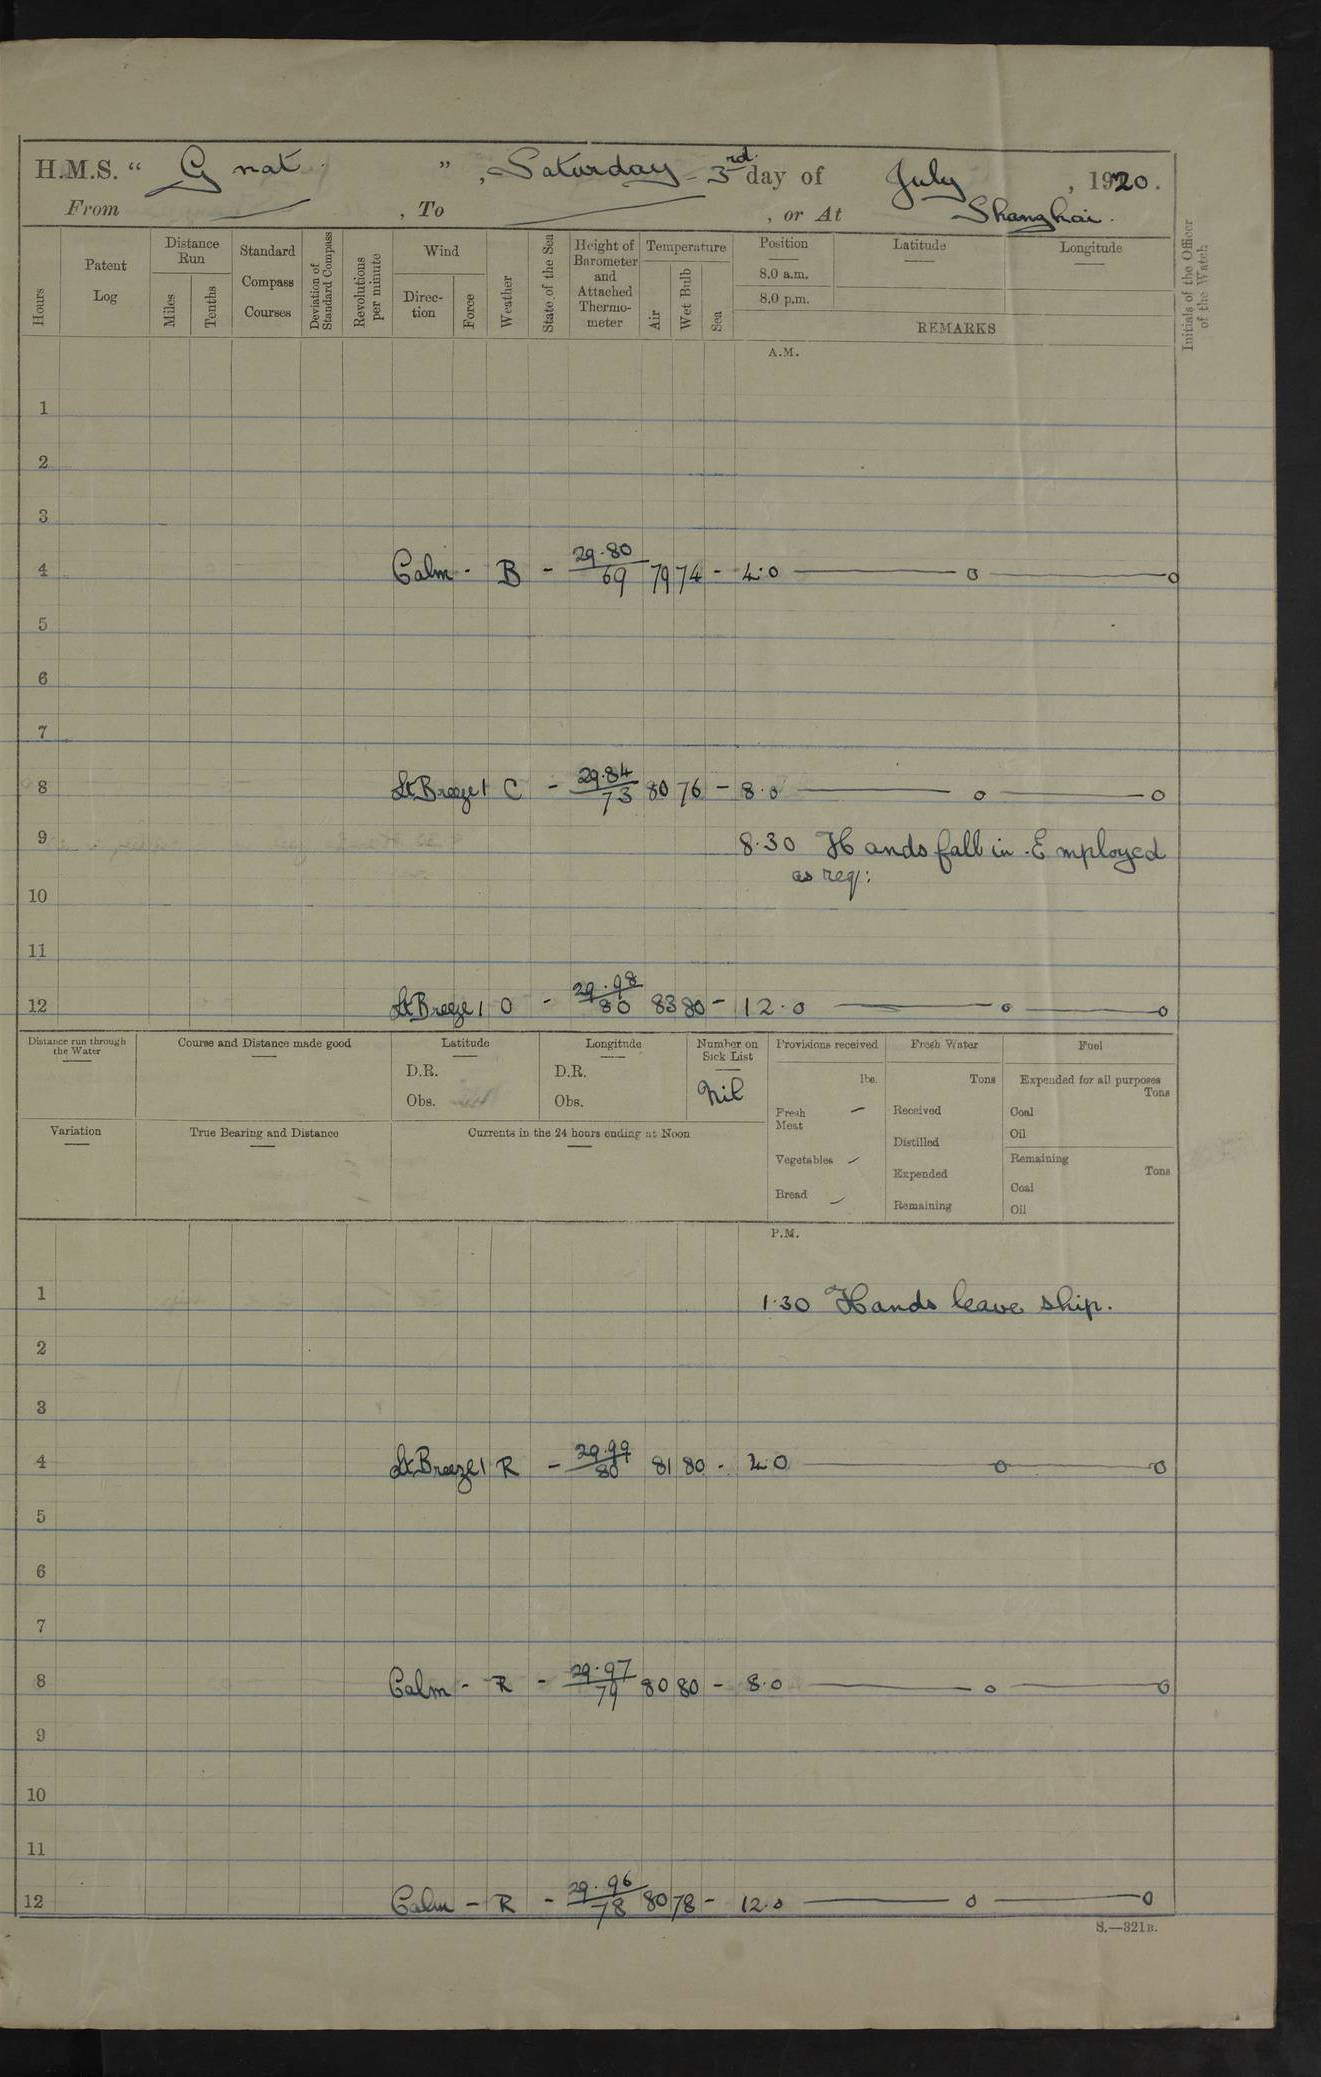 H.M.S. “ Gnat ”, Saturday - 3rd. day of July, 1920.
From — , To — , or At Shanghai.
Hours
Patent Log
Distance Run
Miles
Tenths
Standard Compass Courses
Deviation of Standard Compass
Revolutions per minute
Wind
Direction
Force
Weather
State of the Sea
Height of Barometer and Attached Thermometer
Temperature
Air
Wet Bulb
Sea
Position
8.0 a.m.
8.0 p.m.
Latitude
Longitude
REMARKS
Initials of the Officer of the Watch
A.M.
1
2
3
4 Calm - B - 29.80/69 79 74 - 4.0 — o — o
5
6
7
8 Lt Breeze 1 C - 29.84/73 80 76 - 8.0 — o — o
9 8.30 Hands fall in. Employed
as req:
10
11
12 Lt Breeze 1 O - 29.98/80 83 80 - 12.0 — o — o
Distance run through the Water
Course and Distance made good
Latitude
D.R.
Obs.
Longitude
D.R.
Obs.
Number on Sick List
Nil
Variation
True Bearing and Distance
Currents in the 24 hours ending at Noon
Provisions received
lbs.
Fresh Meat —
Vegetables —
Bread —
Fresh Water
Tons
Received
Distilled
Expended
Remaining
Fuel
Expended for all purposes
Tons
Coal
Oil
Remaining
Tons
Coal
Oil
P.M.
1 1.30 Hands leave ship.
2
3
4 Lt Breeze 1 R - 29.99/80 81 80 - 4.0 — o — o
5
6
7
8 Calm - R - 29.97/79 80 80 - 8.0 — o — o
9
10
11
12 Calm - R - 29.96/78 80 78 - 12.0 — o — o
S.—321B.